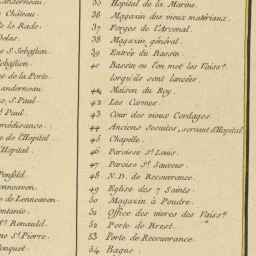 anderneau.
35 Hopital de la Marine.
Château.
36 Magazin des vieux materiaux.
la Rade.
37 Forges de l'Arcenal.
38 Magazin général.
S. Sebastien.
39 Entrée du Bassin.
40 Bassin ou l'on met les Vaiss.
de la Porte.
lorsqu'ils sont lancées.
anderneau.
41 Maison du Roy.
S. Paul.
42 Les Carmes.
Paul.
43 Cour des vieux Cordages.
44 Anciens Jesuites, servant d'Hopital
de l'Hopital
45 Chapelle.
Hopital.
46 Paroisse St. Louis.
47 Paroiss St. Sauveur.
Penfeld.
48 N.D. de Recouvrance.
49 Eglise des 7 Saints.
de Lennoeven.
50 Magazin à Poudre.
51 Office des vivres des Vaiss.
St. Renauld.
52 Porte de Brest.
St. Pierre.
53 Porte de Recouvrance.
onquet.
54 Bagne.